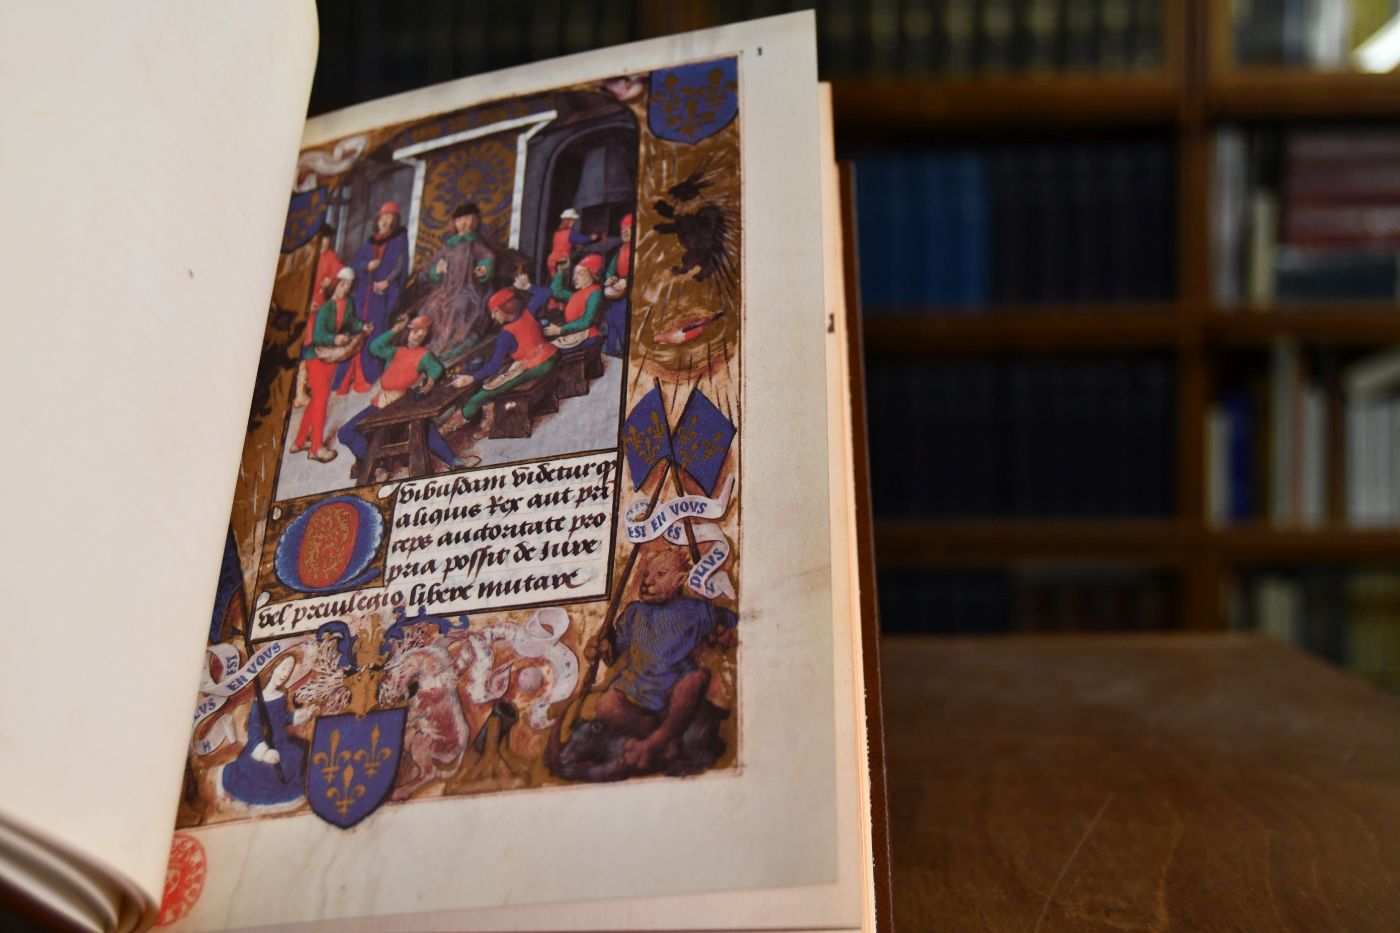 1
Quibusdam videtur q
aliquis Rex aut pri
ceps auctoritate pro
pria possit de iure
vel privilegio libere mutare
EST EN VOUS
EST
EN VOUS